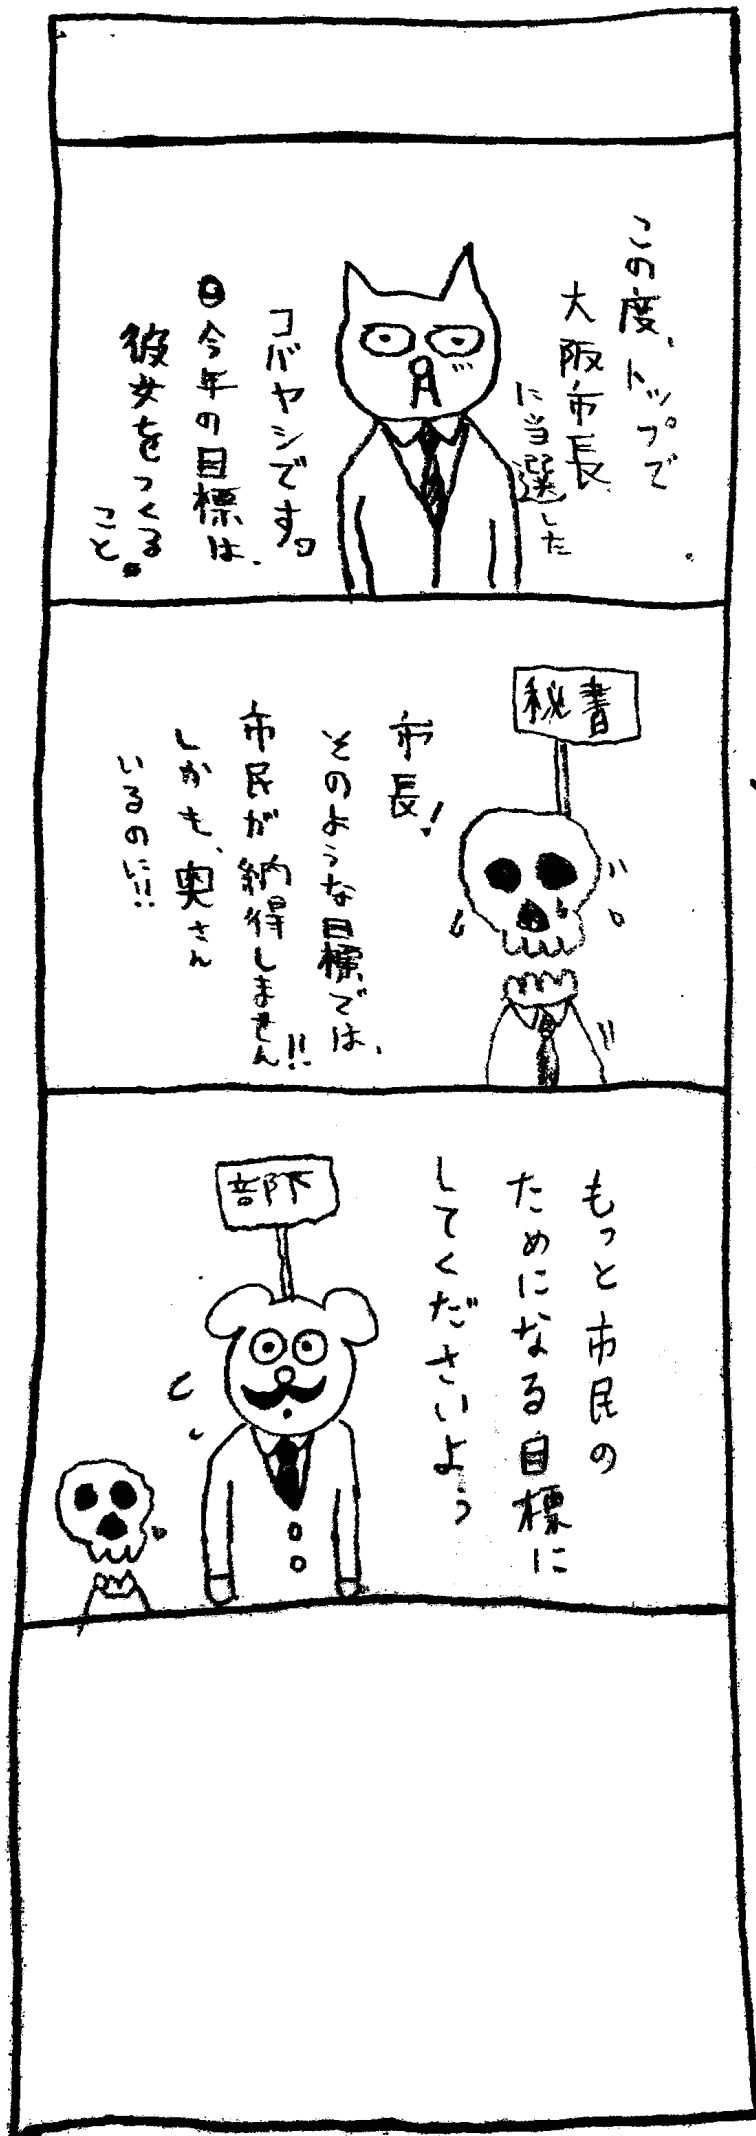 この度、トップで
大阪市長
に当選した
コバヤシです。
今年の目標は、
彼女をつくる
こと。
秘書
市長!
そのような目標では、
市民が納得しません!!
しかも、奥さん
いるのに!!
もっと市民の
ためになる目標に
してくださいよう
部下